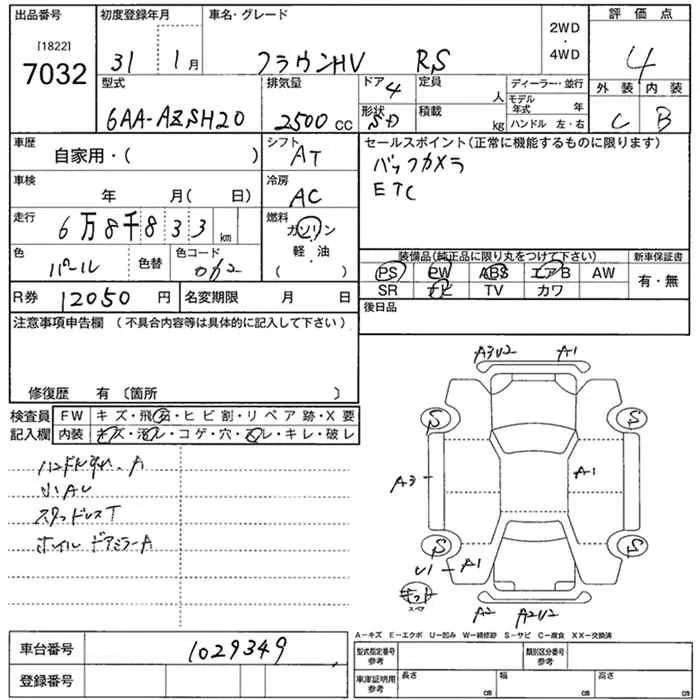 出品番号
[1822]
7032
初度登録年月
31 1月
車名・グレード
クラウンHV RS
2WD
・
4WD
評価点
4
外装 内装
C B
型式
6AA-AZSH20
排気量
2500 CC
ドア 4
形状 SD
定員 人
積載 kg
ディーラー・並行
モデル年式 年
ハンドル 左・右
車歴
自家用・( )
シフト
AT
車検
年 月( 日)
冷房
AC
走行
6万8千833 km
燃料
ガソリン
軽・油
( )
色
パール
色替
色コード
R券 12050 円
名変期限 月 日
セールスポイント(正常に機能するものに限ります)
バックカメラ
ETC
装備品(純正品に限り丸をつけて下さい)
PS PW ABS エアB AW
SR ナビ TV カワ
新車保証書
有・無
後日品
注意事項申告欄(不具合内容等は具体的に記入して下さい)
修復歴 有〔箇所 〕
検査員記入欄
FW キズ・飛石・ヒビ割・リペア跡・X要
内装 キズ・汚レ・コゲ・穴・スレ・キレ・破レ
小AU
スタッドレスT
ホイル ドアミラーA
A3U2 A1
S S
A3 A1
S S
U1 A1
キット
スペア
A2 A2U2
A-キズ E-エクボ U-凹み W-補修跡 S-サビ C-腐食 XX-交換済
車台番号 1029349
登録番号
型式指定番号 参考
類別区分番号 参考
車庫証明用 参考
長さ cm
幅 cm
高さ cm